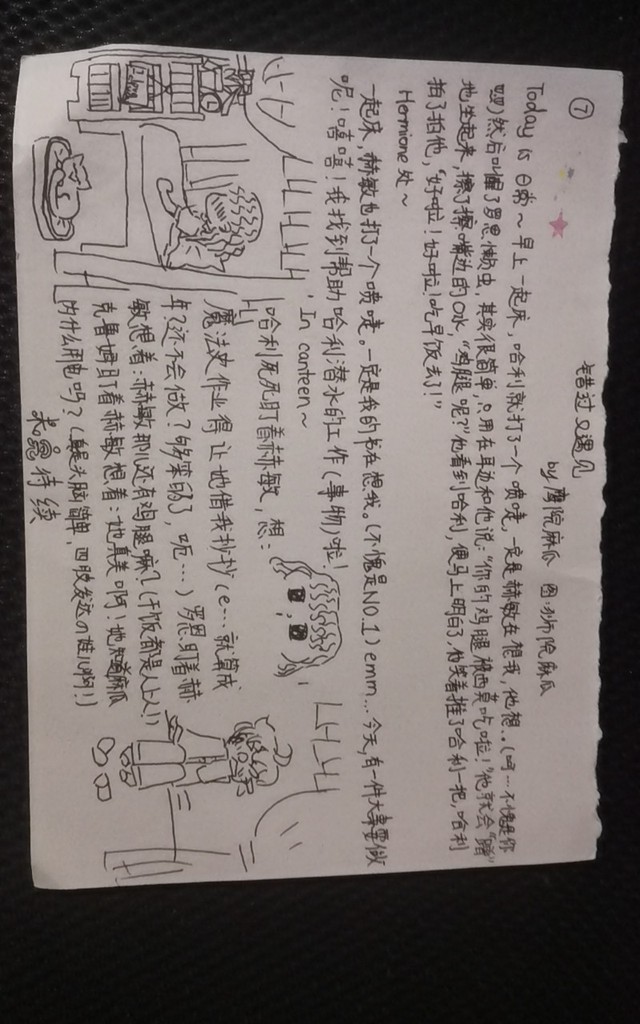 ⑦
错过又遇见
by 鹰院麻瓜 图:狮院麻瓜
Today is 日常~早上一起床,哈利就打了一个喷嚏,一定是赫敏在想我,他想..(呵…不愧是你
嗯)然后叫醒了罗恩懒虫,其实很简单,只用在耳边和他说:“你的鸡腿被西莫吃啦!”他就会“蹭”
地坐起来,擦了擦嘴边的口水,“鸡腿呢?”他看到哈利,便马上明白了,他笑着推了哈利一把,哈利
拍了拍他,“好啦!好啦!吃早饭去了!”
Hermione 处~
一起床,赫敏也打了一个喷嚏。一定是我的书在想我。(不愧是NO.1) emm…今天,有一件大事要做
呢!嘻嘻!我找到帮助哈利潜水的工作(事物)啦!
In canteen~
哈利死死盯着赫敏,想:
魔法史作业得让她借我抄抄(e…就算成
年?还不会做?够笨的了,呃…)罗恩盯着赫
敏想着:赫敏那儿还有鸡腿嘛?(干饭都是人上人!)
克鲁姆盯着赫敏想着:她真美啊!她知道麻瓜
为什么用电吗?(头脑简单,四肢发达の娃儿啊!)
未完待续